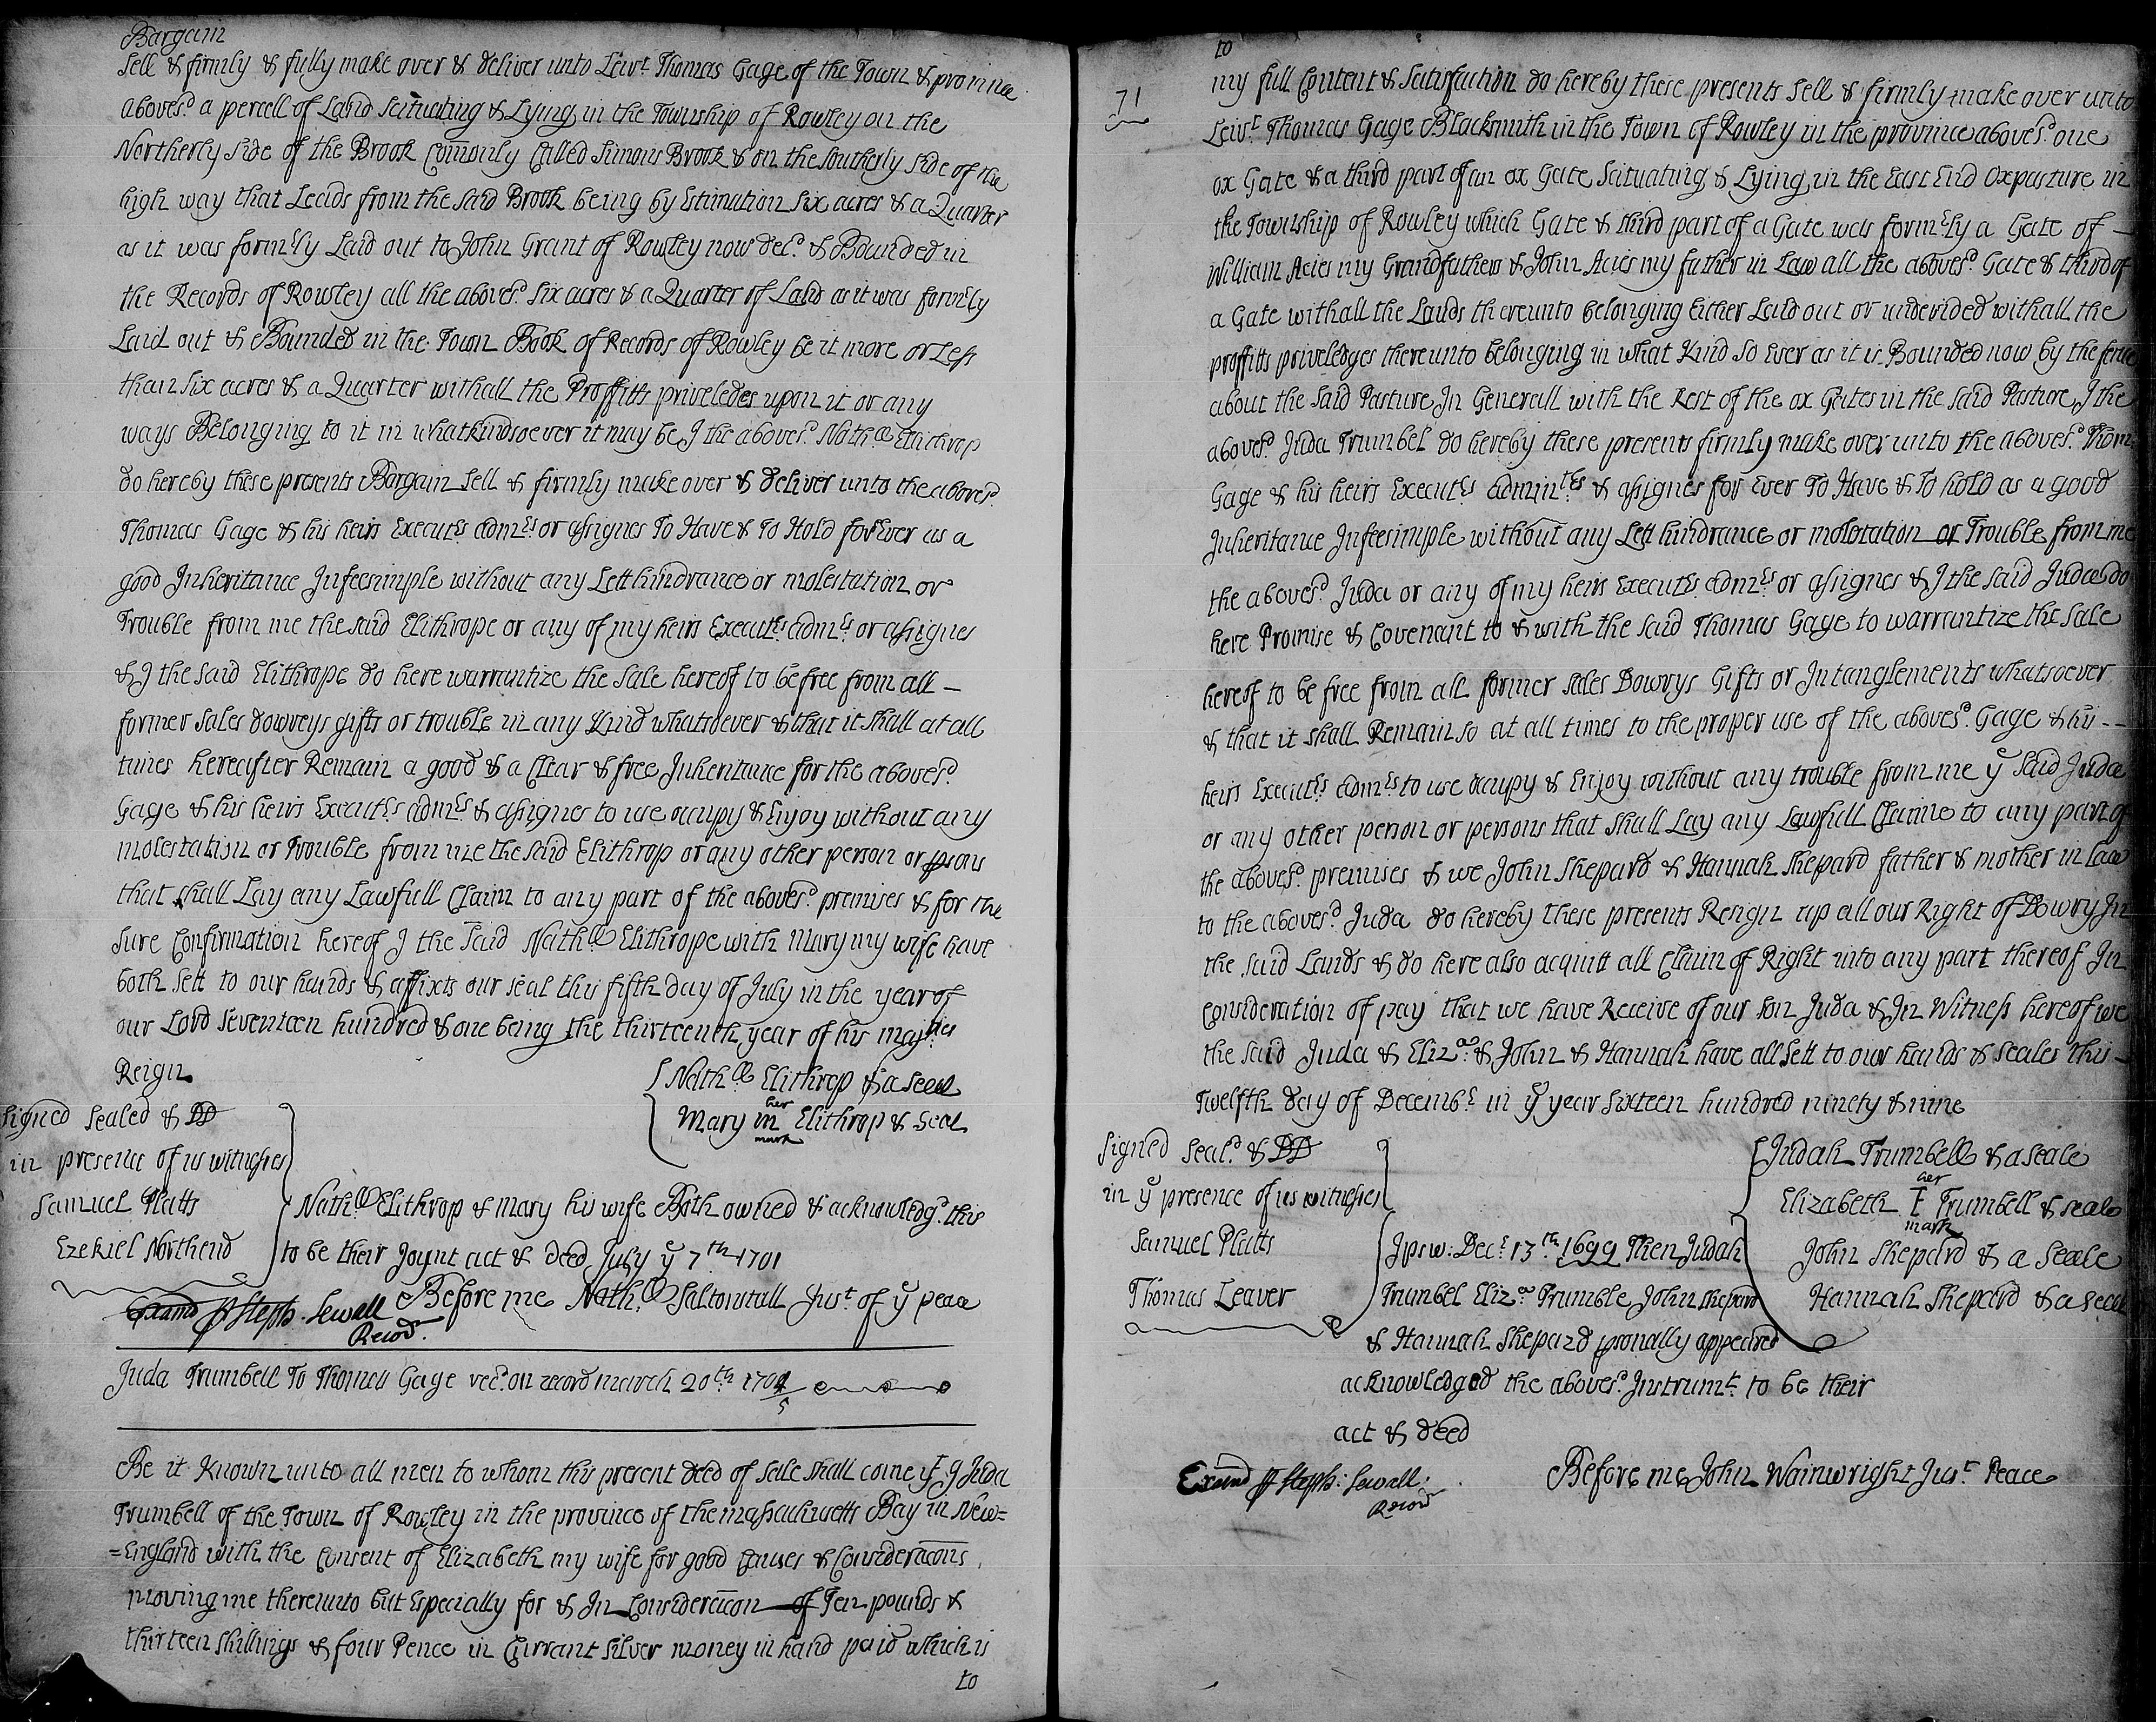 Bargain
Sell & firmly & fully make over & deliver unto Leivt. Thomas Gage of the Town & province
aboves.d a percell of Land Scituating & Lying in the Township of Rowley on the
Northerly Side of the Brook Comonly Called Simons Brook & on the Southerly Side of the
high way that Leads from the Said Brook being by Estimation Six acres & a Quarter
as it was formrly Laid out to John Grant of Rowley now dec.d & Bounded in
the Records of Rowley all the aboves.d Six acres & a Quarter of Land as it was formrly
Laid out & Bounded in the Town Book of Records of Rowley be it more or Less
than six acres & a Quarter withall the Proffitts priveledes upon it or any
ways Belonging to it in whatkindsoever it may be, I the aboves.d Nath.ll Elithrop
do hereby these presents Bargain Sell & firmly make over & deliver unto the aboves.d
Thomas Gage & his heirs Execut.rs adm.rs or assignes To Have & To Hold forEver as a
good Inheritance Infeesimple without any Lett hindrance or molestation or
Trouble from me the said Elithrope or any of my heirs Execut.rs adm.rs or assignes
& I the said Elithrope do here warrantize the Sale hereof to be free from all —
former sales dowreys gifts or trouble in any Kind whatsoever & that it shall at all
times hereafter Remain a good & a Clear & free Inheritance for the aboves.d
Gage & his heirs Execut.rs adm.rs & assignes to use occupy & Enjoy without any
molestation or Trouble from me the said Elithrop or any other person or psons
that shall Lay any Lawfull Claim to any part of the aboves.d premises & for the
Sure Confirmation hereof I the said Nath.ll Elithrope with Mary my wife have
both sett to our hands & affixts our seal this fifth day of July in the year of
our Lord Seventeen hundred & one being the thirteenth year of his maj.ties
Reign
Nath.ll Elithrop & a seal
her
Mary m Elithrop & Seal
mark
Signed Sealed & DD
in presence of us witnesses
Samuel Platts
Ezekiel Northend
Nath.ll Elithrop & Mary his wife Both owned & acknowledg.d this
to be their Joynt act & deed July ye 7th 1701
Before me Nath.ll Saltonstall Jus.t of ye peace
Examd p Steph. Sewall
Record.
Juda Trumbell To Thomas Gage rec.d on record march 20th 1704/5
Be it Known unto all men to whom this present deed of Sale shall come yt I Juda
Trumbell of the Town of Rowley in the province of the massachusetts Bay in New=
=England with the Consent of Elizabeth my wife for good Causes & Consideracons
moving me thereunto but Especially for & In Consideracon of Ten pounds &
thirteen shillings & four Pence in Currant Silver money in hand paid which is
to
71
to
my full Content & Satisfaction do hereby these presents Sell & firmly make over unto
Leiv.t Thomas Gage Blacksmith in the Town of Rowley in the province aboves.d one
ox Gate & a third part of an ox Gate Scituating & Lying in the East End Oxpasture in
the Township of Rowley which Gate & third part of a Gate was formrly a Gate of —
William Acies my Grandfathers & John Acies my father in Law all the aboves.d Gate & third of
a Gate withall the Lands thereunto belonging Either Laid out or undevided withall the
proffitts priveledges thereunto belonging in what Kind so Ever as it is Bounded now by the fence
about the said Pasture In Generall with the Rest of the ox Gates in the said Pasture, I the
aboves.d Juda Trumbel do hereby these presents firmly make over unto the aboves.d Thom
Gage & his heirs Execut.rs admin.trs & assignes for Ever To Have & To hold as a good
Inheritance Infeesimple without any Lett hindrance or molotation or Trouble from me
the aboves.d Juda or any of my heirs Execut.rs adm.rs or assignes & I the said Juda do
here Promise & Covenant to & with the said Thomas Gage to warrantize the Sale
hereof to be free from all former sales Dowrys Gifts or Intanglements whatsoever
& that it shall Remain so at all times to the proper use of the aboves.d Gage & his --
heirs Execut.rs adm.rs to use occupy & Enjoy without any trouble from me ye said Juda
or any other person or persons that shall Lay any Lawfull Claime to any part of
the aboves.d premises & we John Shepard & Hannah Shepard father & mother in Law
to the aboves.d Juda do hereby these presents Resign up all our Right of Dowry In
the said Lands & do here also acquitt all Claim of Right into any part thereof In
Consideration of pay that we have Receive of our son Juda & In Witness hereof we
the said Juda & Eliz.a & John & Hannah have all Sett to our hands & Seales this —
Twelfth day of Decemb.r in ye year sixteen hundred ninety & nine
Signed Seal.d & DD
in ye presence of us witnesses
Samuel Platts
Thomas Leaver
Judah Trumbell & a seale
her
Elizabeth E Trumbell & seale
mark
John Shepard & a Seale
Hannah Shepard & a seal
Ipsw: Dec.r 13th 1699 Then Judah
Trumbel Eliz.a Trumble, John Shepard
& Hannah Shepard psonally appeared
acknowledged the aboves.d Instrum.t to be their
act & deed
Before me John Wainwright Jus.t Peace
Examd p Steph: Sewall.
Record